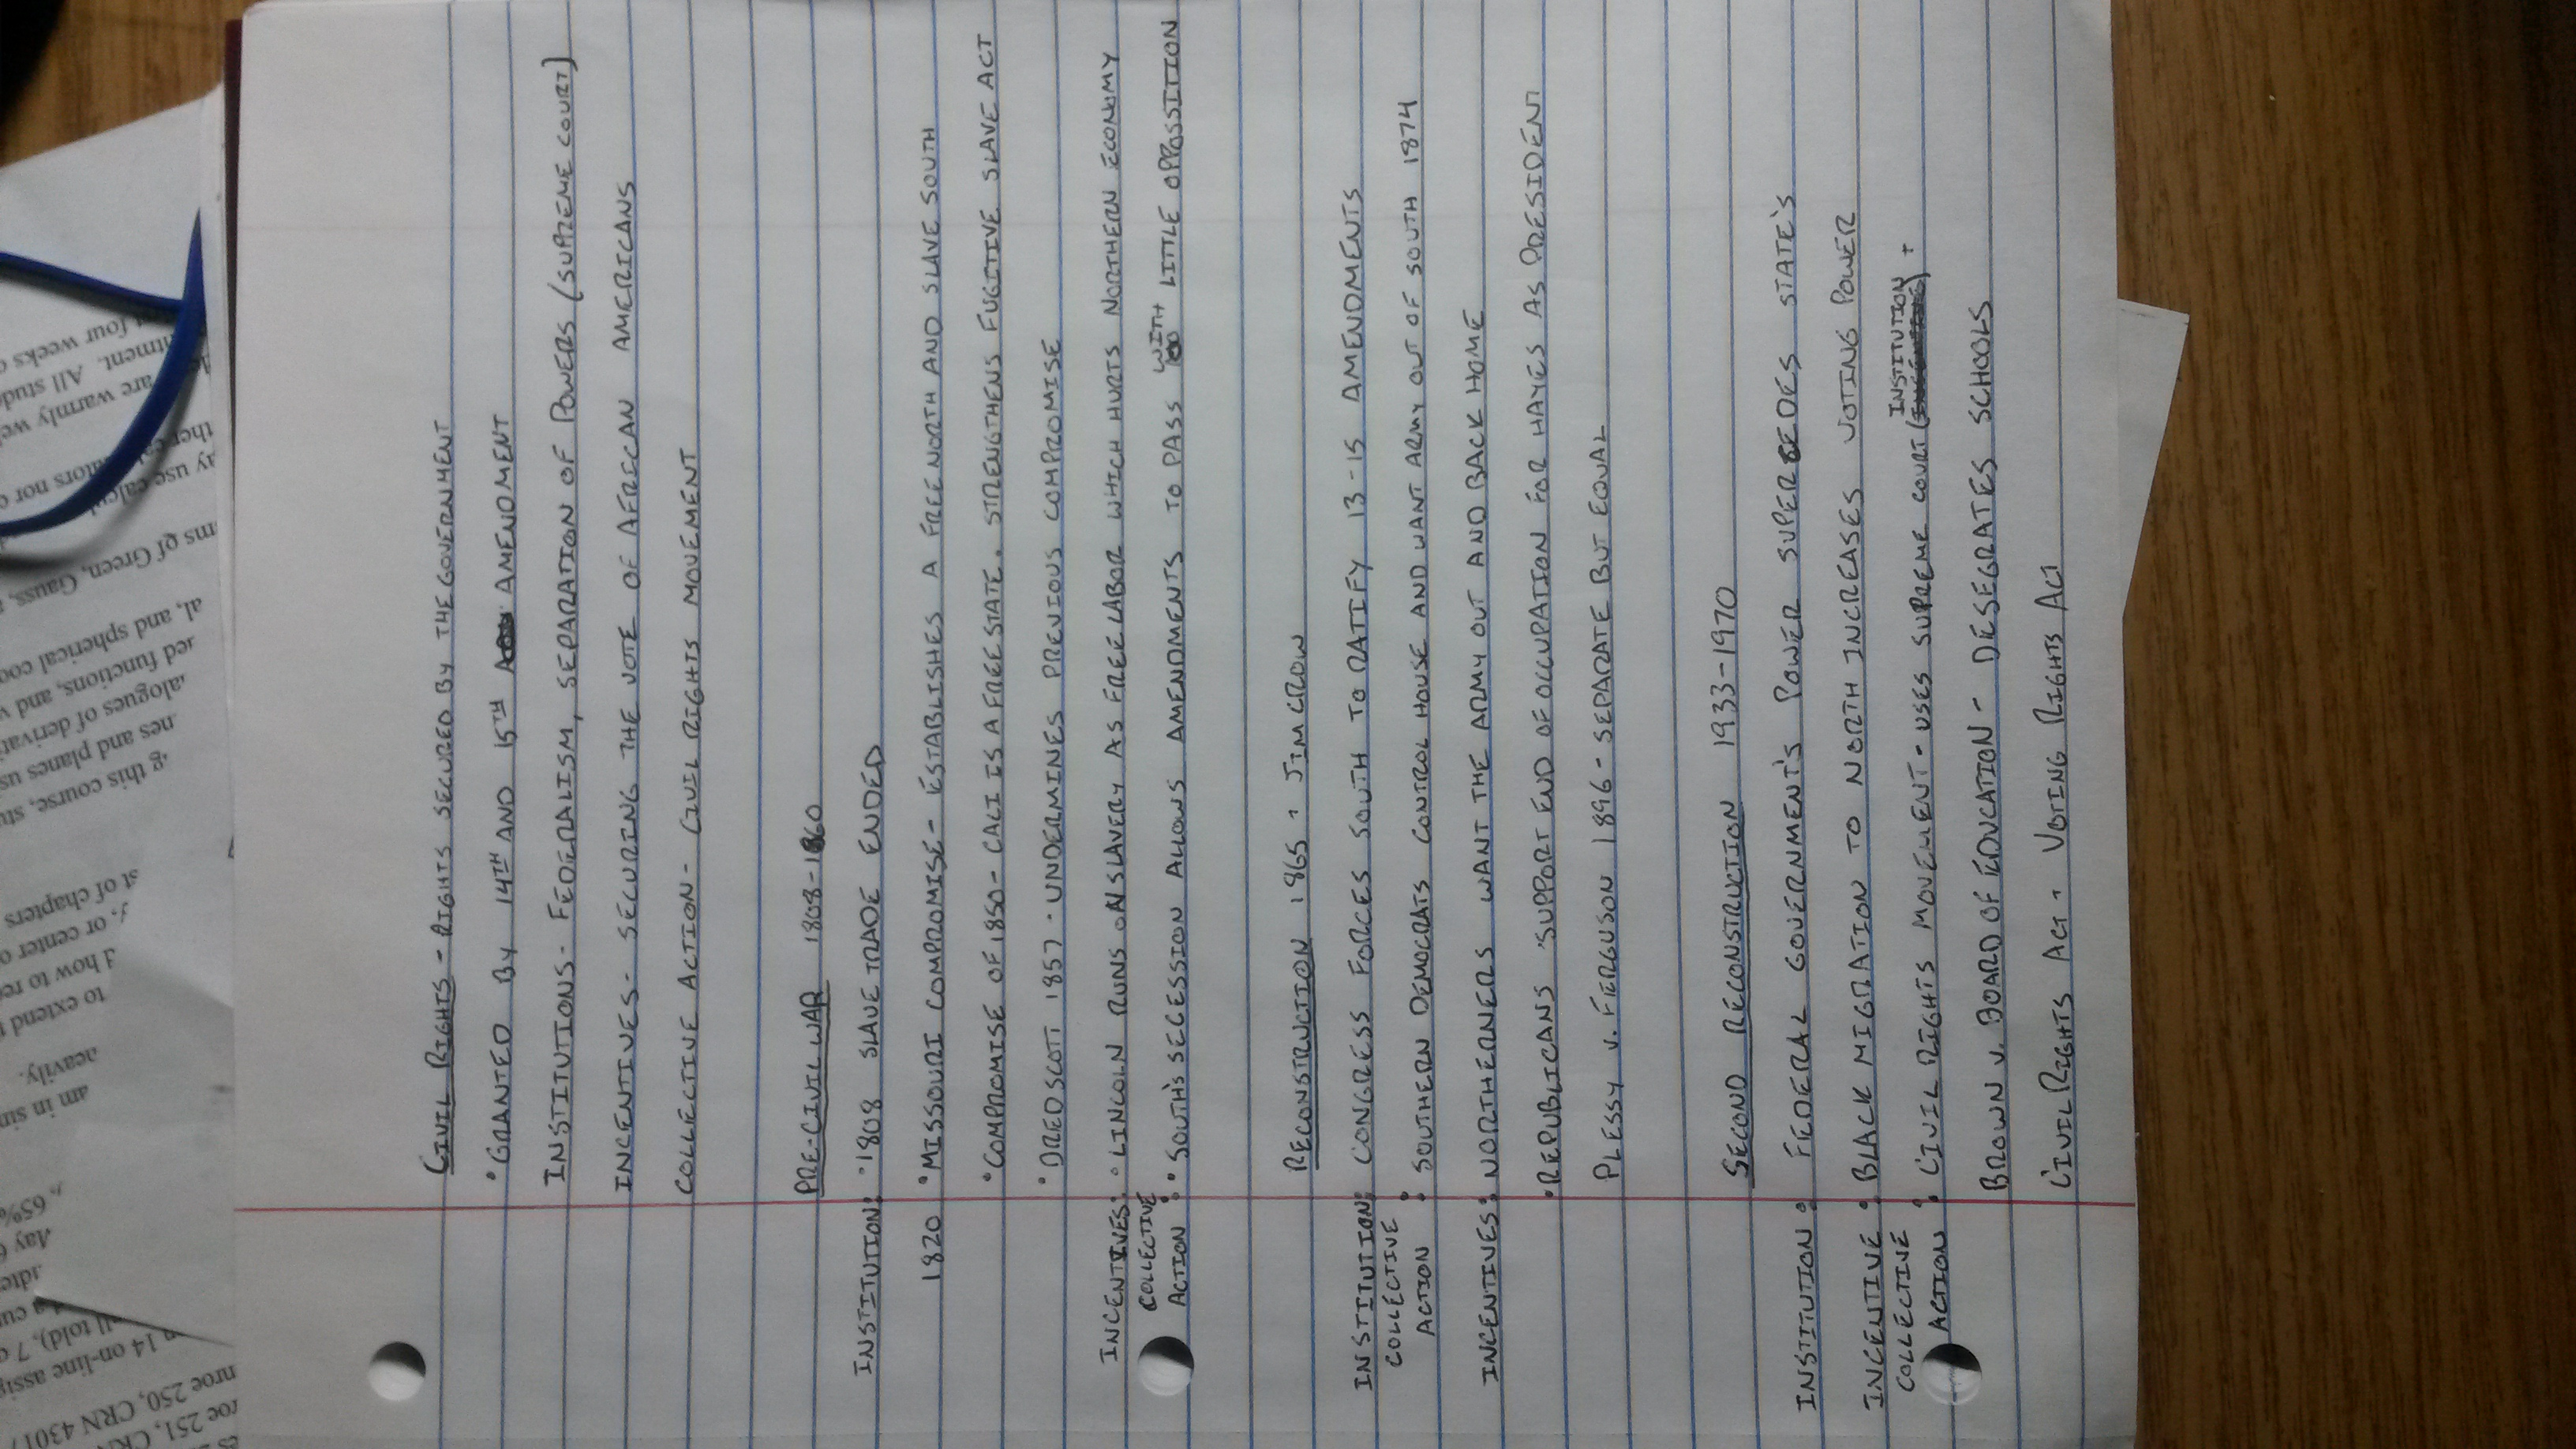 CIVIL RIGHTS - RIGHTS SECURED BY THE GOVERNMENT
• GRANTED BY 14TH AND 15TH AMENDMENT
INSTITUTIONS - FEDERALISM, SEPARATION OF POWERS (SUPREME COURT)
INCENTIVES - SECURING THE VOTE OF AFRICAN AMERICANS
COLLECTIVE ACTION - CIVIL RIGHTS MOVEMENT
PRE-CIVIL WAR 1808-1860
INSTITUTION: • 1808 SLAVE TRADE ENDED
1820 • MISSOURI COMPROMISE - ESTABLISHES A FREE NORTH AND SLAVE SOUTH
• COMPROMISE OF 1850 - CALI IS A FREE STATE. STRENGTHENS FUGITIVE SLAVE ACT
• DRED SCOTT 1857 - UNDERMINES PREVIOUS COMPROMISE
INCENTIVES: • LINCOLN RUNS ON SLAVERY AS FREE LABOR WHICH HURTS NORTHERN ECONOMY
COLLECTIVE ACTION : • SOUTH'S SECESSION ALLOWS AMENDMENTS TO PASS WITH LITTLE OPPOSITION
RECONSTRUCTION 1865 - JIM CROW
INSTITUTION: CONGRESS FORCES SOUTH TO RATIFY 13-15 AMENDMENTS
COLLECTIVE ACTION : SOUTHERN DEMOCRATS CONTROL HOUSE AND WANT ARMY OUT OF SOUTH 1874
INCENTIVES: NORTHERNERS WANT THE ARMY OUT AND BACK HOME
• REPUBLICANS SUPPORT END OF OCCUPATION FOR HAYES AS PRESIDENT
PLESSY v. FERGUSON 1896 - SEPARATE BUT EQUAL
SECOND RECONSTRUCTION 1933-1970
INSTITUTION : FEDERAL GOVERNMENT'S POWER SUPERCEDES STATE'S
INCENTIVE : BLACK MIGRATION TO NORTH INCREASES VOTING POWER
COLLECTIVE ACTION : CIVIL RIGHTS MOVEMENT - USES SUPREME COURT (INSTITUTION) +
BROWN v. BOARD OF EDUCATION - DESEGRATES SCHOOLS
CIVIL RIGHTS ACT - VOTING RIGHTS ACT
four weeks
All stud
are warmly we
ms of Green, Gauss,
al, and spherical coo
functions, and
alogues of derivati
nes and planes us
g this course, stu
st of chapters
or center o
d how to re
to extend
eavily.
am in sin
65%
14 on-line assig
nroe 250, CRN 4301
roe 251, CRN